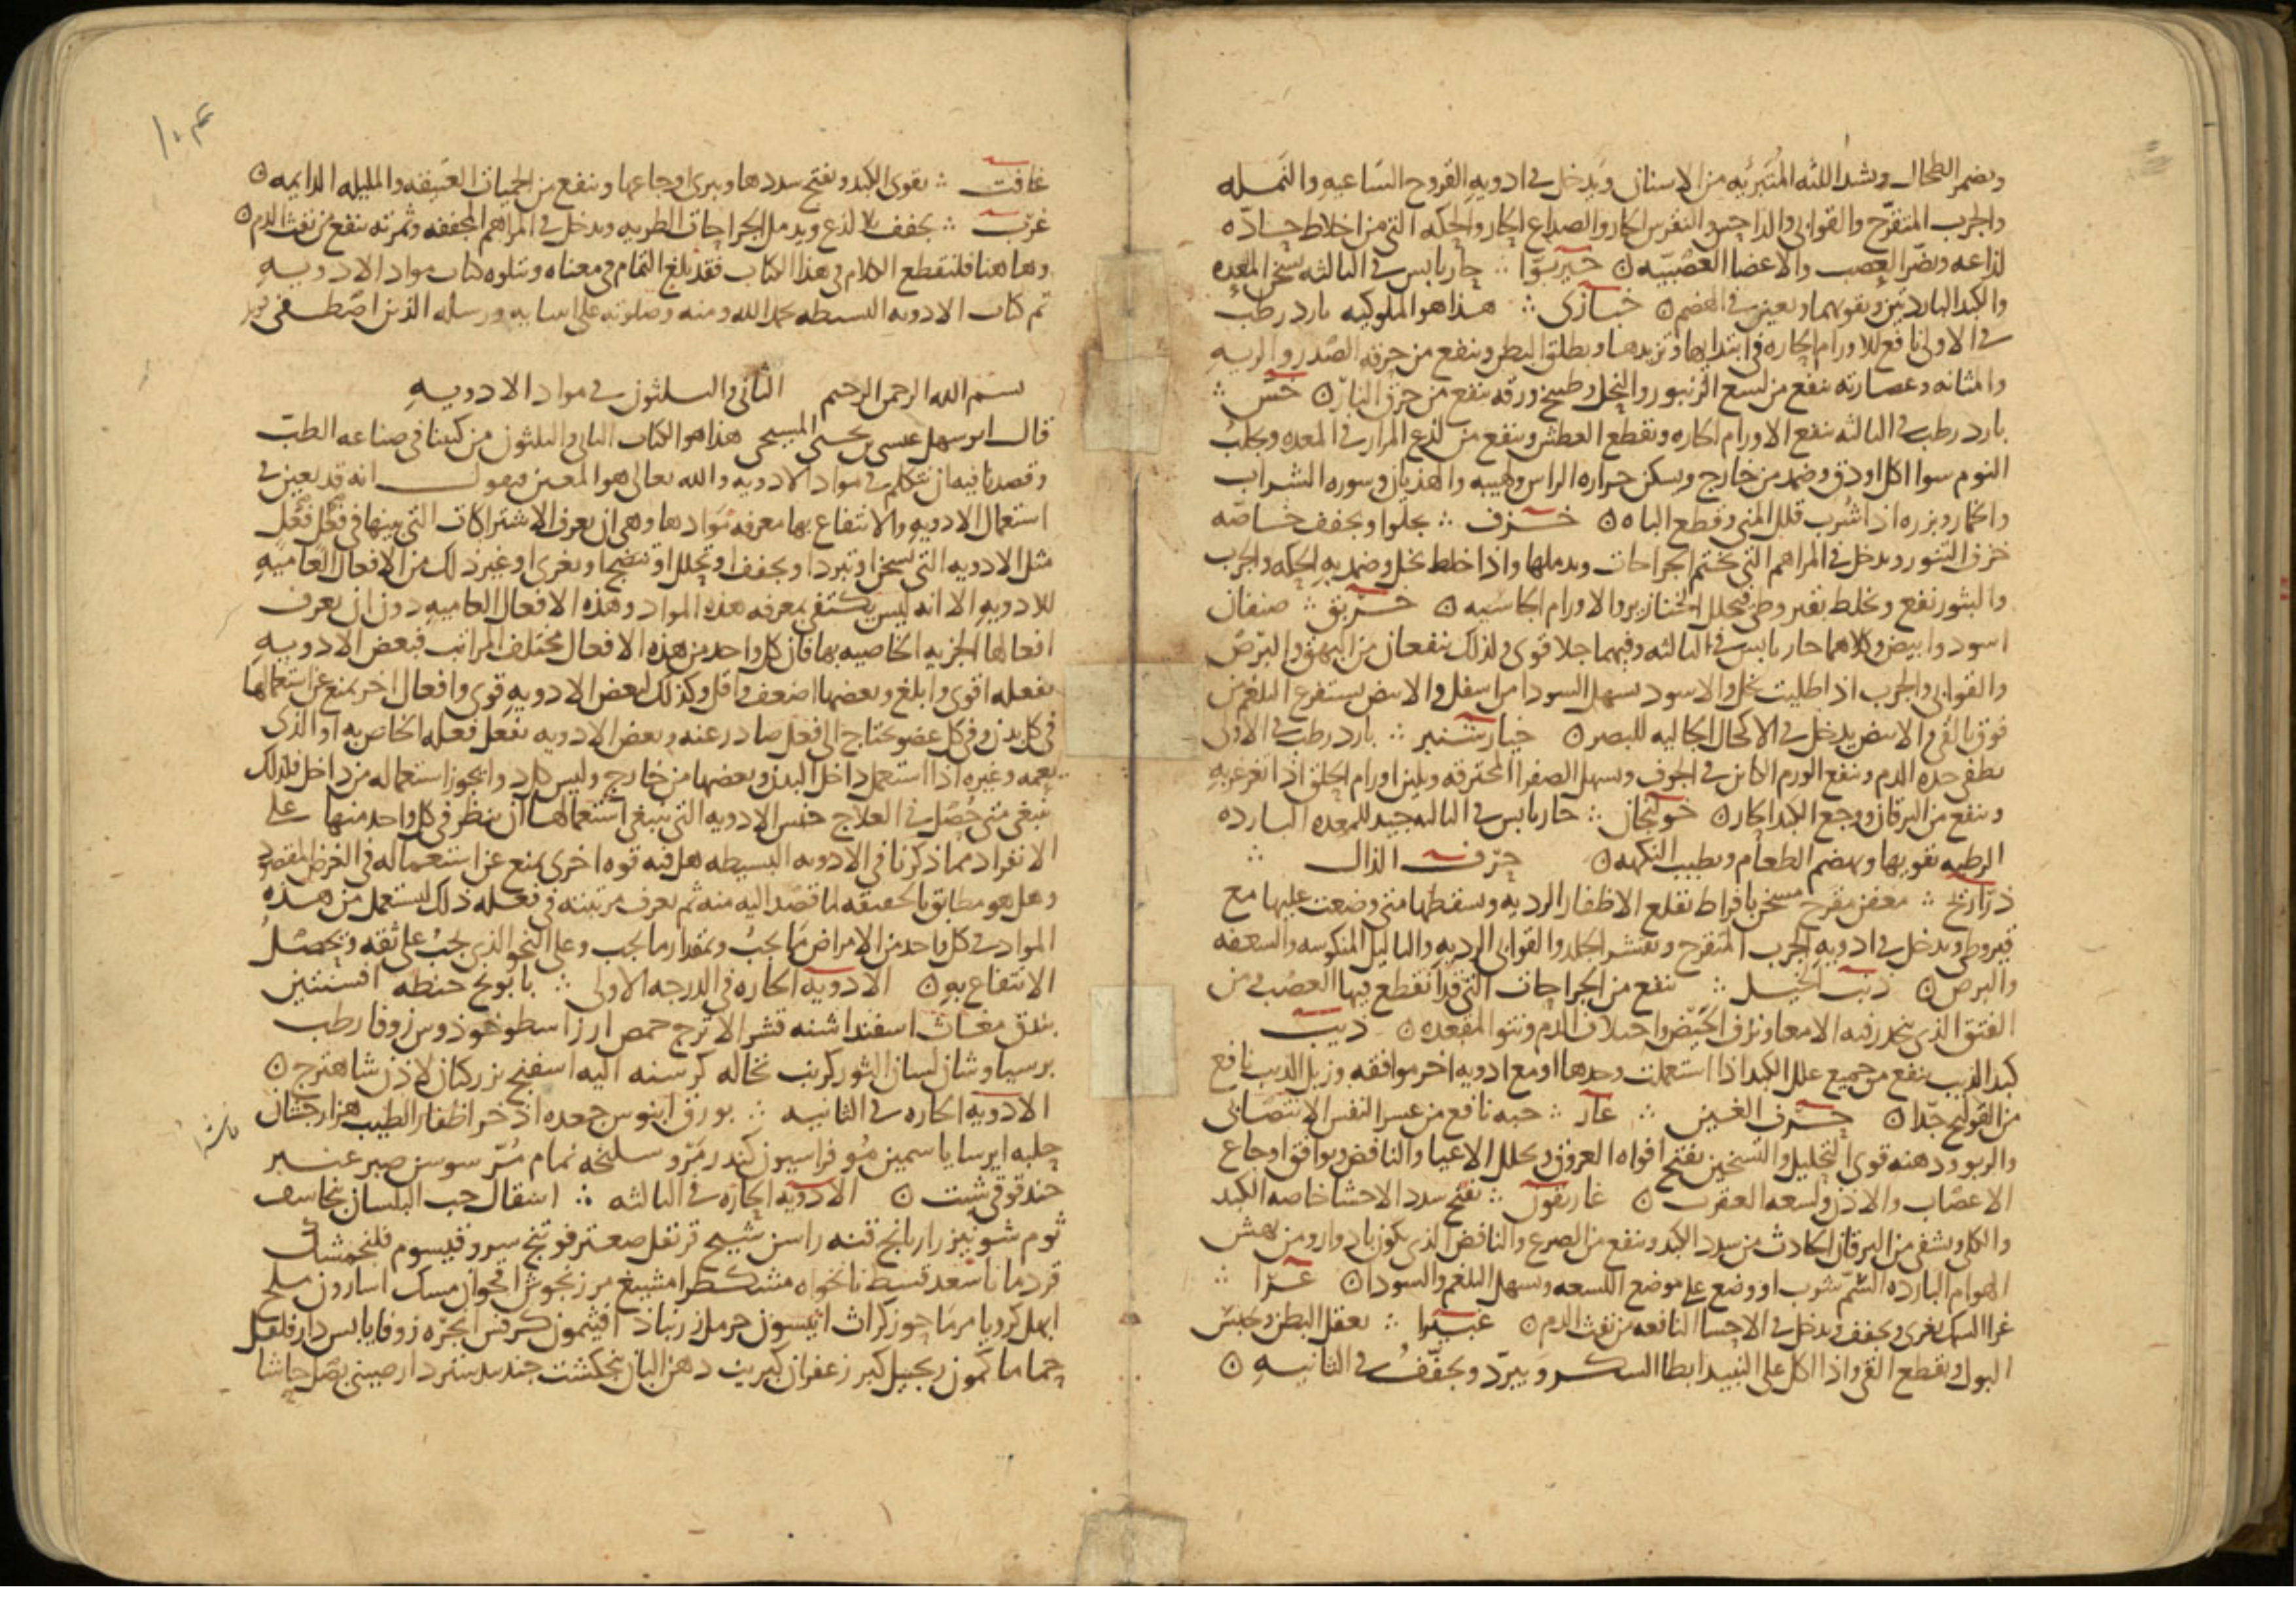 ويضمر الطحال ويشد اللثه المتبرئه من الاسنان ويدخل في ادويه القروح الساعيه والنمله
والجرب المتقرح والقوابي والداحس والنقرس الحار والصداع الحار والحكه التي من اخلاط حاده
لذاعه ويضر العصب والاعضا العصبيه ن خيربوا ∴ حار يابس في الثالثه يسخن المعده
والكبد الباردتين ويقويهما ويعين في الهضم ن خبازى ∴ هذا هو الملوكيه بارد رطب
في الاولى نافع للاورام الحاره في ابتدايها وتزيدها ويطلق البطن وينفع من حرقه الصدر والريه
والمثانه وعصارته تنفع من لسع الزنبور والنحل وطبيخ ورقه ينفع من حرق النار ن خس ∴
بارد رطب في الثالثه ينفع الاورام الحاره ويقطع العطش وينفع من لذع المرار في المعده ويجلب
النوم سوا اكل او دق وضمد من خارج ويسكن حراره الراس ولهيبه والهذيان وسوره الشراب
والخمار وبزره اذا شرب قلل المني وقطع الباه ن خزف ∴ يجلوا ويجفف خاصه
خزف التنور ويدخل في المراهم التي تختم الجراحات ويدملها واذا خلط بخل وضمد به الحكه والجرب
والبثور نفع ويخلط بقيروطي فيحلل الخنازير والاورام الجاسيه ن خربق ∴ صنفان
اسود وابيض وكلاهما حار يابس في الثالثه وفيهما جلا قوى ولذلك ينفعان من البهق والبرص
والقوابي والجرب اذا طليت بخل والاسود يسهل السودا من اسفل والابيض يستفرغ البلغم من
فوق بالقي والابيض يدخل في الاكحال الجاليه للبصر ن خيار شنبر ∴ بارد رطب في الاولى
يطفي حده الدم وينفع الورم الكاين في الجوف ويسهل الصفرا المحترقه ويلين اورام الحلق اذا تغرغر به
وينفع من اليرقان ووجع الكبد الحار ن خولنجان ∴ حار يابس في الثالثه جيد للمعده البارده
الرطبه يقويها ويهضم الطعام ويطيب النكهه ن حرف الذال ∴
ذراريح ∴ معفن مقرح مسخن بافراط تقلع الاظفار الرديه وتسقطها متى وضعت عليها مع
قيروطي ويدخل في ادويه الجرب المتقرح وتقشر الجلد والقوابي الرديه والثاليل المنكوسه والسعفه
والبرص ن ذنب الخيل ∴ ينفع من الجراحات التي قد انقطع فيها العصب ومن
الفتق الذي ينحدر فيه الامعا ونزف الحيض واختلاف الدم ونتو المقعده ن ذيب
كبد الذيب ينفع من جميع علل الكبد اذا استعملت وحدها او مع ادويه اخر موافقه وزبل الذيب نافع
من القولنج جدا ن حرف الغين ∴ غار ∴ حبه نافع من عسر النفس الانتصابي
والربو ودهنه قوى التحليل والتسخين يفتح افواه العروق ويحلل الاعياء والنافض ويوافق اوجاع
الاعصاب والاذن ولسعه العقرب ن غاريقون ∴ يفتح سدد الاحشا خاصه الكبد
والكلى ويشفي من اليرقان الحادث من سدد الكبد وينفع من الصرع والنافض الذي يكون بادوار ومن نهش
الهوام البارده السم شرب او وضع على موضع اللسعه ويسهل البلغم والسودا ن غرا ∴
غرا السمك يغرى ويجفف ويدخل في الاحسا النافعه من نفث الدم ن غبيرا ∴ يعقل البطن ويحبس
البول ويقطع القي واذا اكل على النبيذ ابطا السكر ويبرد ويجفف في الثانيه ن
١٠٤
غافت ∴ يقوى الكبد ويفتح سددها ويبرى اوجاعها وينفع من الحميات العتيقه والمليله الدايمه ن
غرب ∴ يجفف بلا لذع ويدمل الجراحات الطريه ويدخل في المراهم المجففه وثمرته تنفع من نفث الدم ن
وهاهنا فلنقطع الكلام في هذا الكتاب فقد بلغ التمام في معناه ويتلوه كتاب مواد الادويه
تم كتاب الادويه البسيطه بحمد الله ومنه وصلوته على انبيايه ورسله الذين اصطفى
بسم الله الرحمن الرحيم الثاني والثلثون في مواد الادويه
قال ابو سهل عيسى بن يحيى المسيحي هذا هو الكتاب الثاني والثلثون من كتبنا في صناعه الطب
وقصدنا فيه ان نتكلم في مواد الادويه والله تعالى هو المعين فنقول انه قد يعين في
استعمال الادويه والانتفاع بها معرفه موادها وهي ان يعرف الاشتراكات التي بينها في فعل فعل
مثل الادويه التي تسخن او تبرد او تجفف او تحلل او تنضج او تغرى او غير ذلك من الافعال العاميه
للادويه الا انه ليس يكتفي بمعرفه هذه المواد وهذه الافعال العاميه دون ان يعرف
افعالها الجزيه الخاصيه بها فان كل واحد من هذه الافعال مختلف المراتب فبعض الادويه
يفعله اقوى وابلغ وبعضها اضعف واقل وكذلك لبعض الادويه قوى وافعال اخر يمنع عن استعمالها
في كل بدن وفي كل عضو يحتاج الى فعل صادر عنه وبعض الادويه يفعل فعله الخاص به او الذي
يعمه وغيره اذا استعمل داخل البدن وبعضها من خارج وليس كل دوا يجوز استعماله من داخل فلذلك
ينبغي متى حصل في العلاج جنس الادويه التي ينبغي استعمالها ان ينظر في كل واحد منها على
الانفراد مما ذكرنا في الادويه البسيطه هل فيه قوه اخرى يمنع عن استعماله في الغرض المقصود
وهل هو مطابق بالحقيقه لما قصد اليه منه ثم يعرف مرتبته في فعله ذلك ليستعمل من هذه
المواد في كل واحد من الامراض ما يجب وبمقدار ما يجب وعلى النحو الذي يجب على ثقه ويحصل
الانتفاع به ن الادويه الحاره في الدرجه الاولى ∴ بابونج حنطه افسنتين
بندق مغاث اسفند اشنه قشر الاترج حمص ارز اسطوخوذوس زوفا رطب
برسياوشان لسان الثور كرنب نخاله كرسنه اليه اسفنج بزر كتان لاذن شاهترج ن
الادويه الحاره في الثانيه ∴ بورق ابنوس جعده اذخر اظفار الطيب هزارجشان
حلبه ايرسا ياسمين مو فراسيون كندر مرو سليخه نمام مر سوسن صبر عنبر
حندقوقي شبت ن الادويه الحاره في الثالثه ∴ اشقال حب البلسان برنجاسف
ثوم شونيز رازيانج قنه راسن شيح قرنفل صعتر فوتنج سرو قيسوم فلنجمشك
قردمانا سعد قسط نانخواه مشكطرامشيغ مرزنجوش اقحوان مسك اسارون ملح
ابهل كرويا مرماحوز كراث انيسون حرمل زرنباد افيثمون كرفس انجره زوفا يابس دارفلفل
حماما كمون زنجبيل كبر زعفران كبريت دهن البان بنجنكشت جندبيدستر دارصيني بصل حاشا